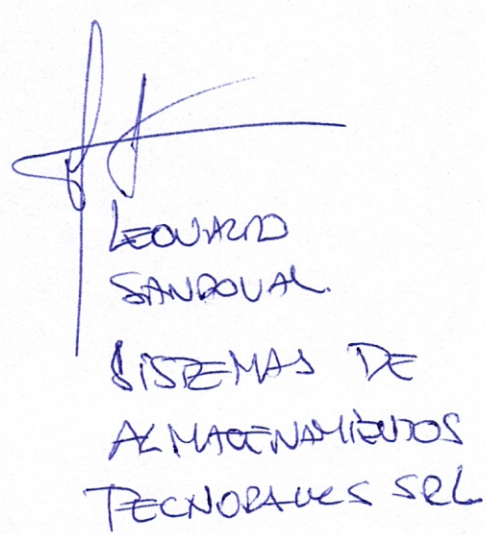 LEONARDO
SANDOVAL.
SISTEMAS DE
ALMACENAMIENTOS
TECNORALLES SRL